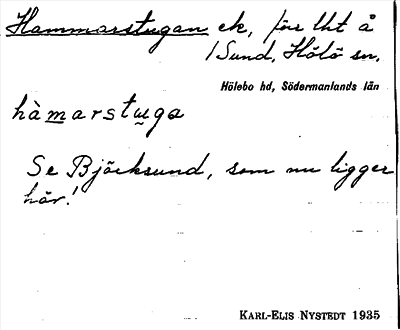 Hammarstugan, ek, förr lht å
/Sund, Hölö sn.
Hölebo hd, Södermanlands län
hàmarstuga
Se Björksund, som nu ligger
här!
KARL-ELIS NYSTEDT 1935